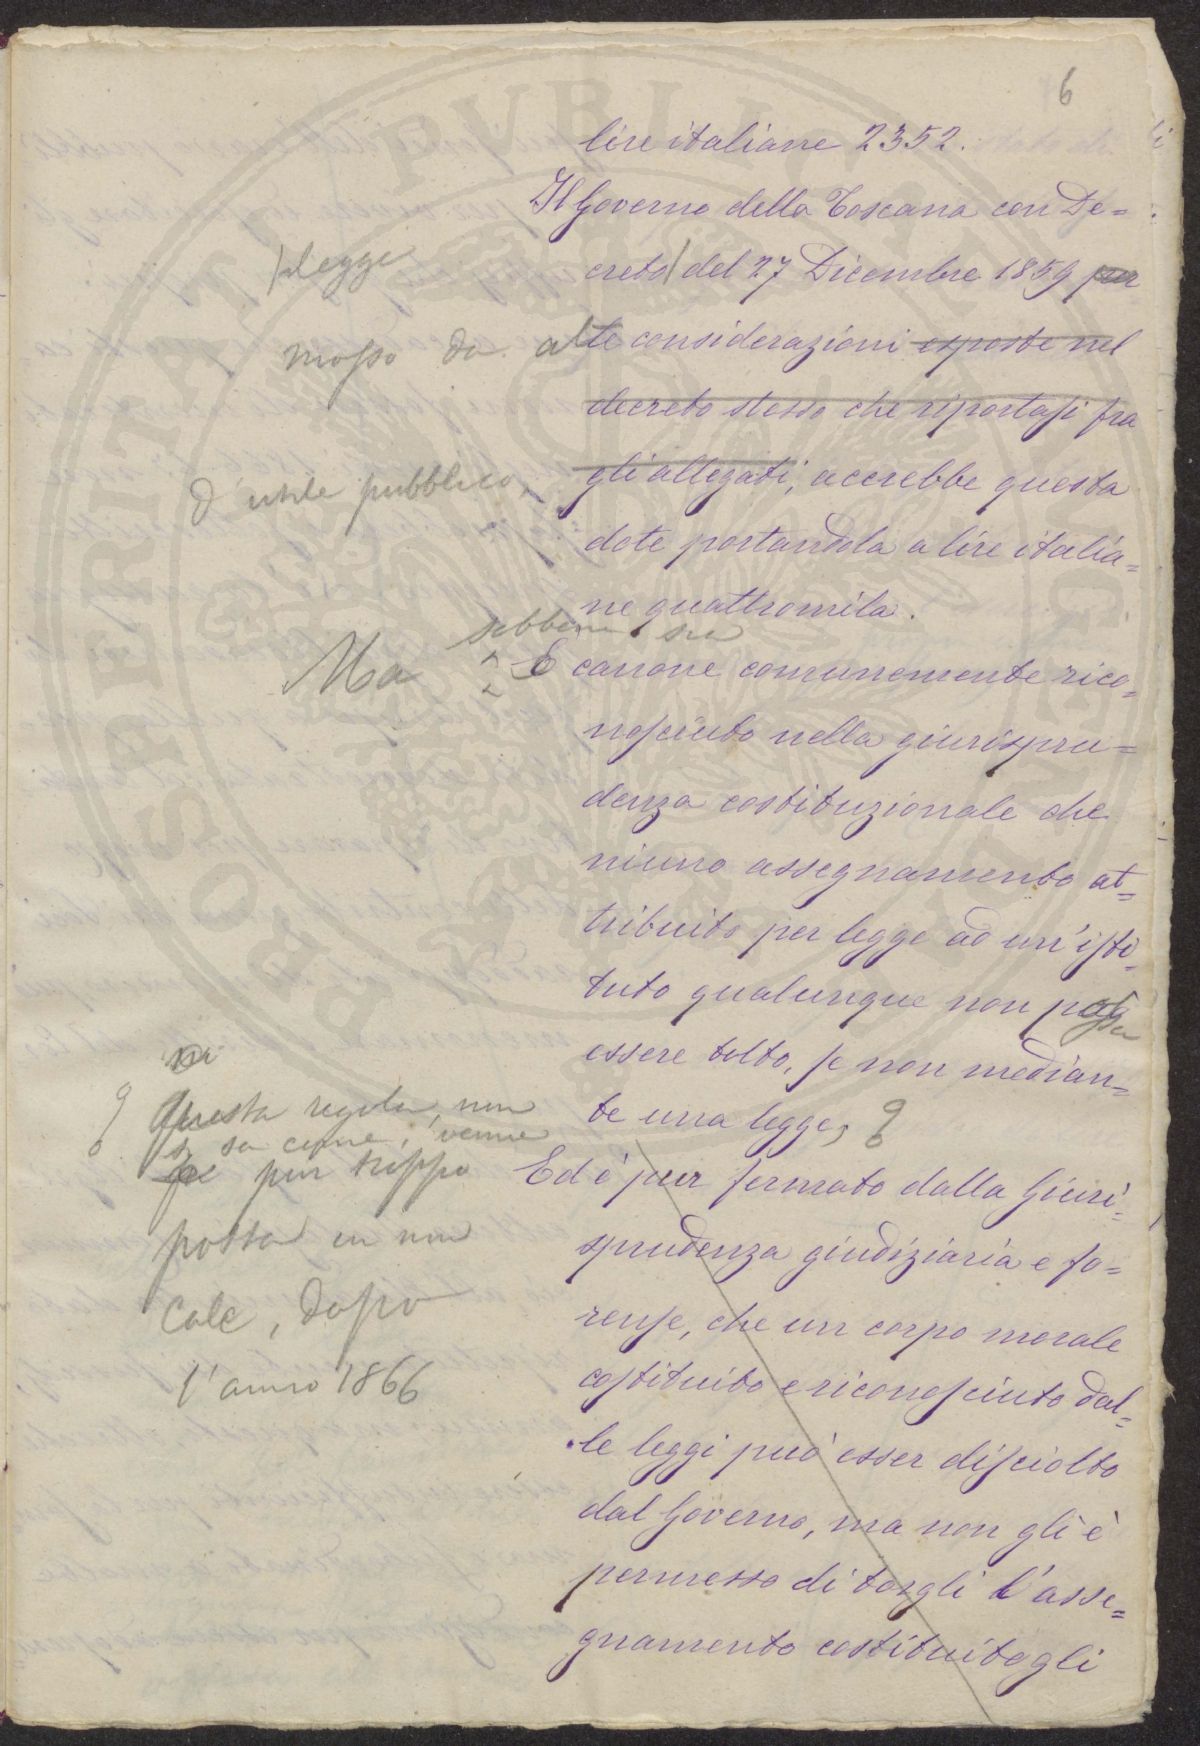 6
lire italiane 2352.
Il Governo della Toscana con De=
creto/ del 27 Dicembre 1859 per
/legge
mosso da alte considerazioni esposte nel
decreto stesso che riportasi fra
gli allegati, accrebbe questa
d'utile pubblico,
dote portandola a lire italia=
ne quattromila.
sebbene sia
Ma E canone comunemente rico=
nosciuto nella giurispru=
denza costituzionale che
niuno assegnamento at=
tribuito per legge ad un'isti=
tuto qualunque non possa
essere tolto, se non median=
te una legge,
questa regola, non
si sa come, venne
pur troppo
posta in non
cale, dopo
l'anno 1866
Ed è pur fermato dalla Giuri=
sprudenza giudiziaria e fo=
rense, che un corpo morale
costituito e riconosciuto dal=
le leggi può esser disciolto
dal Governo, ma non gli è
permesso di torgli l'asse=
gnamento costituitogli